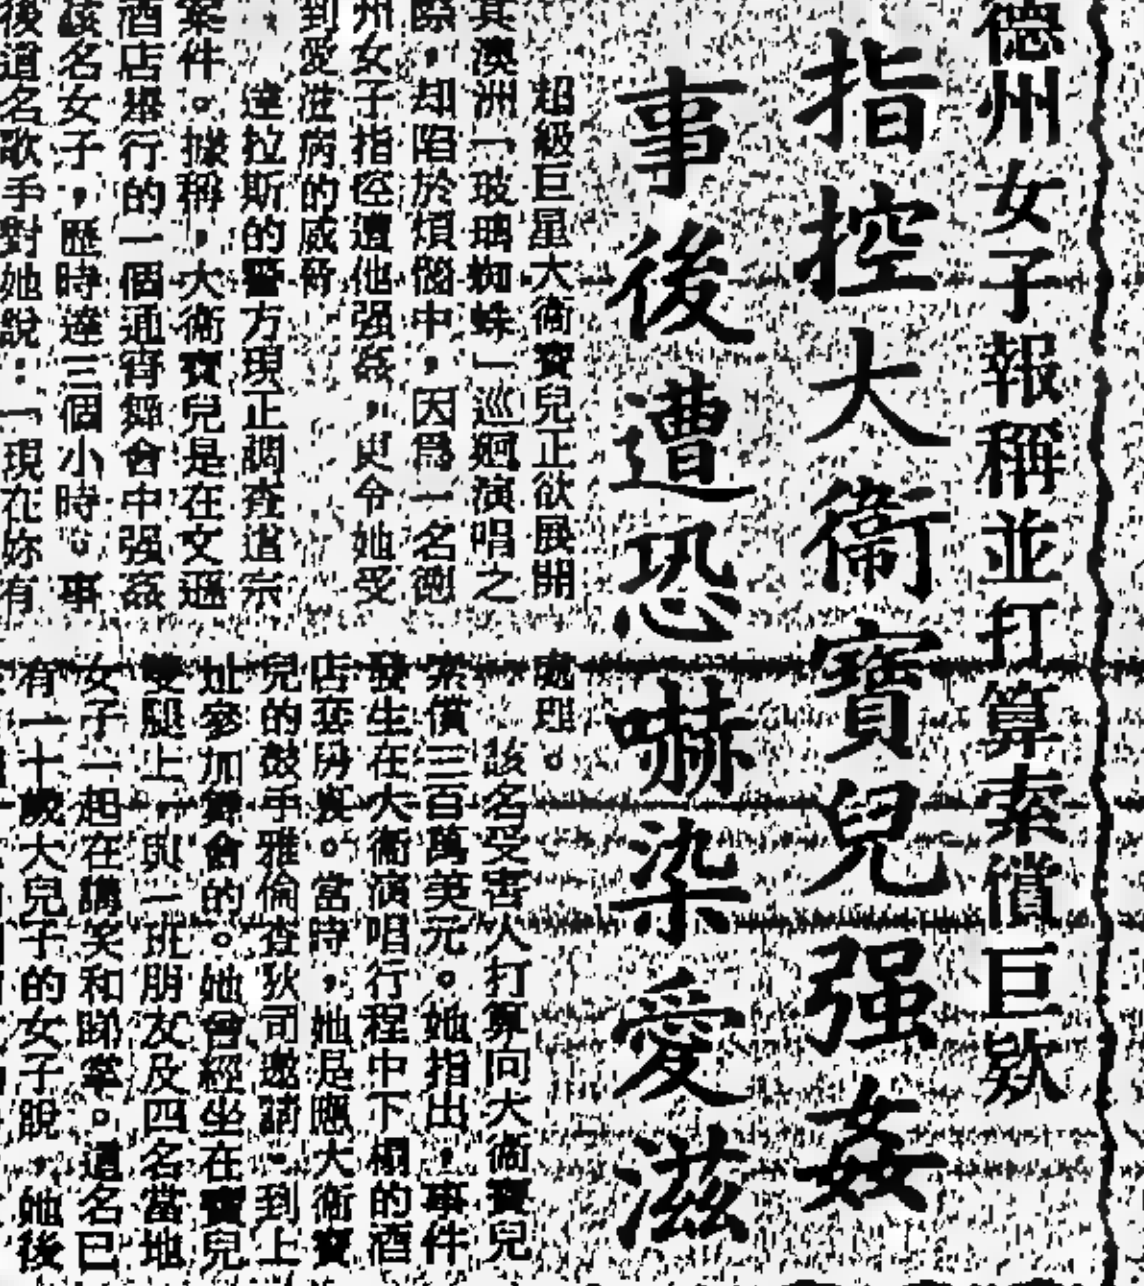 德州女子報稱並打算索償巨欵
指控大衞寶兒强姦
事後遭恐嚇染愛滋
超級巨星大衞寶兒正欲展開
其澳洲「玻璃蜘蛛」巡廻演唱之
際，却陷於煩惱中，因爲一名德
州女子指控遭他强姦，更令她受
到愛滋病的威脅
達拉斯的警方現正調查這宗
案件。據稱，大衞寶兒是在文遜
酒店舉行的一個通宵舞會中强姦
該名女子，歷時達三個小時。事
後這名歌手對她說：「現在妳有
處理。
該名受害人打算向大衞寶兒
索償三百萬英元。她指出，事件
發生在大衞演唱行程中下榻的酒
店套房裏。當時，她是應大衞寶
兒的鼓手雅倫查狄司邀請，到上
址參加舞會的。她曾經坐在寶兒
雙腿上，與一班朋友及四名當地
女子一起在講笑和睇掌。這名已
有一十歲大兒子的女子說，她後